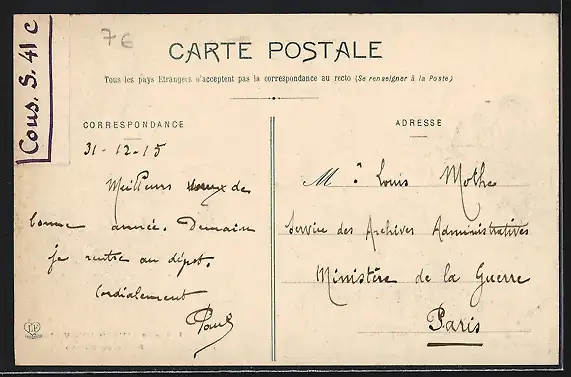 7€
Cons. S. 41c
CARTE POSTALE
Tous les pays Etrangers n'acceptent pas la correspondance au recto (Se renseigner à la Poste)
CORRESPONDANCE
31-12-15
Meilleurs voeux de
bonne année. Demain
je rentre au dépot.
Cordialement
Paul
ADRESSE
Mr Louis Mothe
Service des Archives Administratives
Ministère de la Guerre
Paris